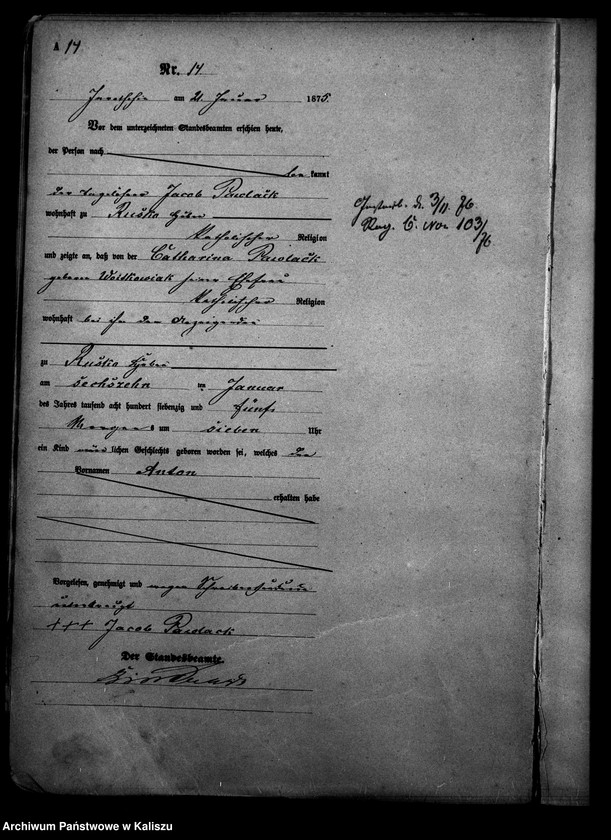 A 14
Nr. 14
am 21 Januar 1875.
Vor dem unterzeichneten Standesbeamten erschien heute,
der Person nach
kannt
Jacob
wohnhaft zu Rusko
Katholischer Religion
und zeigte an, daß von der Catharina
geborene Woitkowiak seiner Ehefrau
Katholischer Religion
wohnhaft bei ihm dem Anzeigenden
zu Rusko
am sechszehn ten Januar
des Jahres tausend acht hundert siebenzig und fünf
Morgens um sieben Uhr
ein Kind männ lichen Geschlechts geboren worden sei, welches den
Vornamen Anton
erhalten habe
Vorgelesen, genehmigt und wegen
+++ Jacob
Der Standesbeamte.
3/11 76
103/76
Archiwum Państwowe w Kaliszu